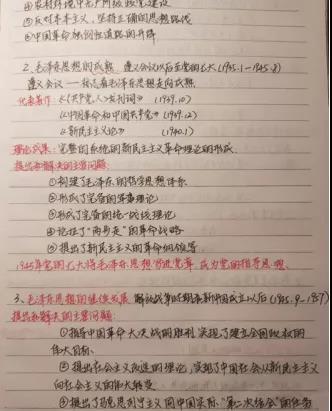 ⑤反对本本主义，坚持正确的思想路线
⑥中国革命新道路的开辟
2、毛泽东思想的成熟 遵义会议以后至党的七大(1935.1-1945.8)
遵义会议——标志着毛泽东思想走向成熟
代表著作：《<共产党人>发刊词》(1939.10)
《中国革命和中国共产党》(1939.12)
《新民主主义论》(1940.1)
理论成果：完整的系统的新民主主义革命理论的形成
提出和解决的主要问题：
①构建了毛泽东的哲学思想体系
②形成了完备的军事理论
③形成了完备的统一战线理论
④论证了"两步走"的革命战略
⑤提出了新民主主义的革命纲领等
1945年党的七大将毛泽东思想写进党章，成为党的指导思想。
3、毛泽东思想的继续发展 解放战争时期和新中国成立以后(1945.9-1957)
提出和解决的主要问题：
①指导中国革命大决战的胜利，实现了建立全国政权的
伟大目标
②提出社会主义改造的理论，实现了中国社会从新民主主义
向社会主义的伟大转变
③提出了马克思列宁主义同中国实际"第二次结合"的任务